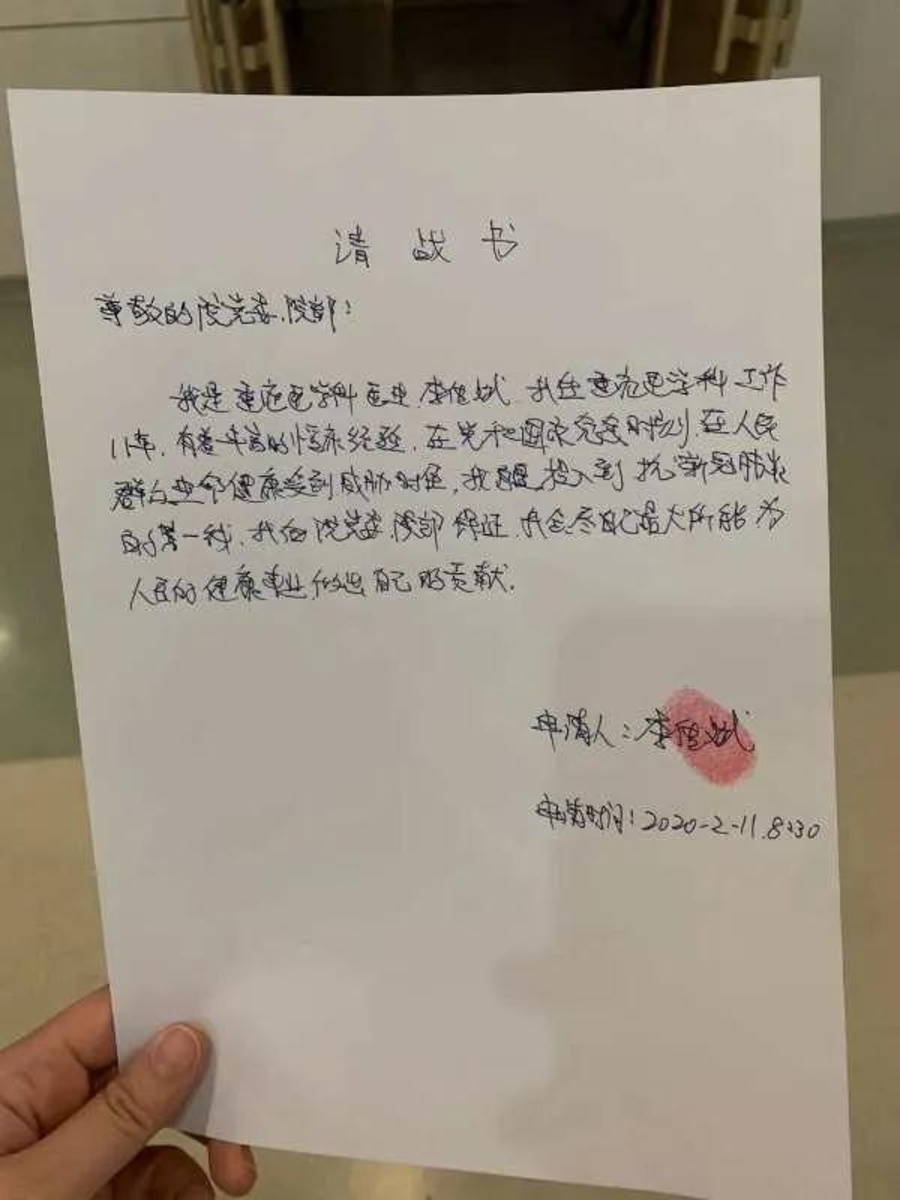 请战书
尊敬的院党委、院部：
我是重症医学科医生李佳斌，我在重症医学科工作
11年，有着丰富的临床经验，在党和国家危难时刻，在人民
群众生命健康受到威胁时候，我愿意投入到抗新冠肺炎
的第一线，我向院党委、院部保证，我会尽自己最大所能为
人民的健康事业做出自己的贡献.
申请人：李佳斌
申请时间：2020-2-11.8:30